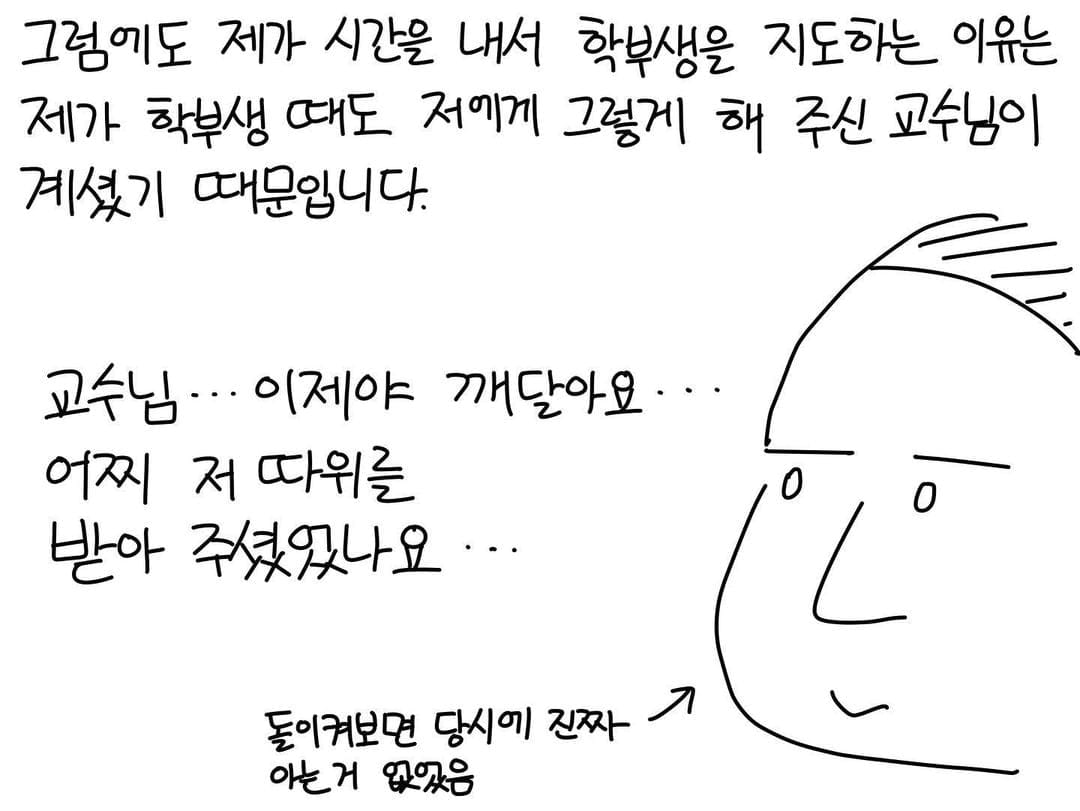 그럼에도 제가 시간을 내서 학부생을 지도하는 이유는
제가 학부생 때도 저에게 그렇게 해 주신 교수님이
계셨기 때문입니다.
교수님... 이제야 깨달아요...
어찌 저 따위를
받아 주셨었나요...
돌이켜보면 당시에 진짜
아는거 없었음